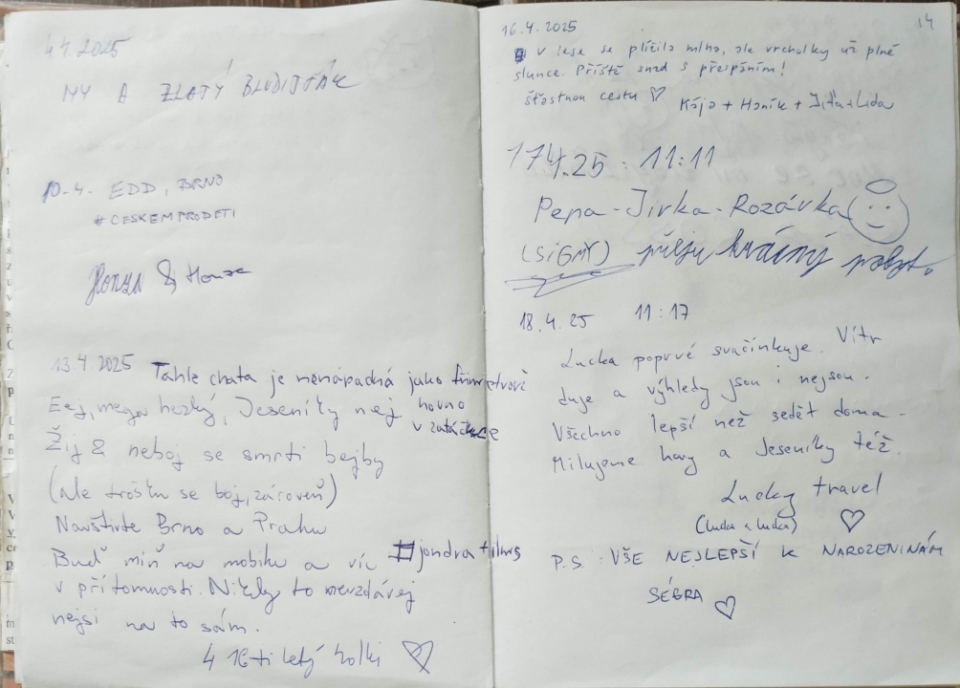 4.4.2025
MY A ZLATÝ BLUDIŠŤÁK
10.4. EDD, BRNO
#CESKEMPRODETI
Honza & Honza
13.4.2025 Tahle chata je nenápadná jako třímetrový
hovno
v zatáčce
Eej, mega hezký, Jeseníky nej
Žij & neboj se smrti bejby
(ale trošku se boj, zároveň)
Navštivte Brno a Prahu
Buď míň na mobilu a víc
#jandrafilms
v přítomnosti. Nikdy to nevzdávej
nejsi na to sám.
4 16-ti letý holki ♡
14
16.4.2025
v lese se plížila mlha, ale vrcholky už plné
slunce. Příště snad s přespáním!
šťastnou cestu ♡ Kája + Honík + Jíťa + Lída
17.4.25 : 11:11
Pepa - Jirka - Rozárka
(SIGMY) přeju krásný pobyt.
18.4.25 11:17
Lucka poprvé svačinkuje. Vítr
duje a výhledy jsou i nejsou.
Všechno lepší než sedět doma.
Milujeme hory a Jeseníky též.
Lucky travel
(Lucka a Lucka) ♡
P.S. VŠE NEJLEPŠÍ K NAROZENINÁM
SÉGRA ♡